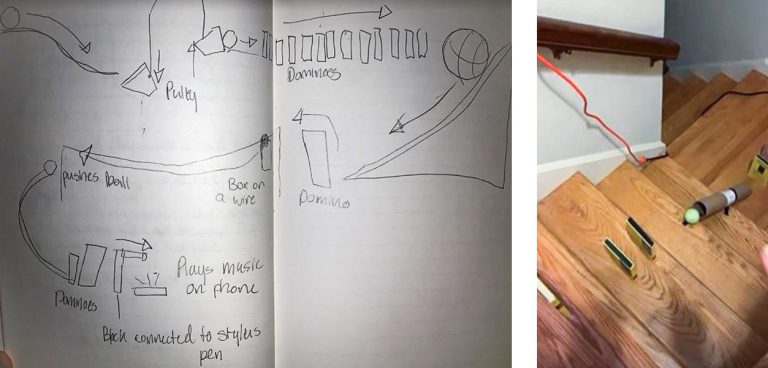 Pulley
Dominoes
pushes ball
Box on
a wire
Domino
Dominoes
Plays music
on phone
Block connected to stylus
pen